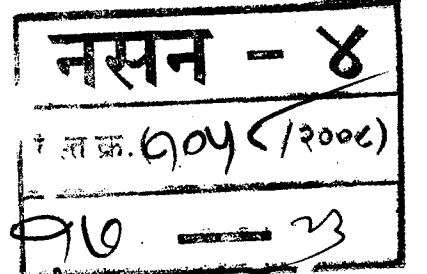 नसन - ४
त क्र. (७०५८/२००८)
१७ — २३